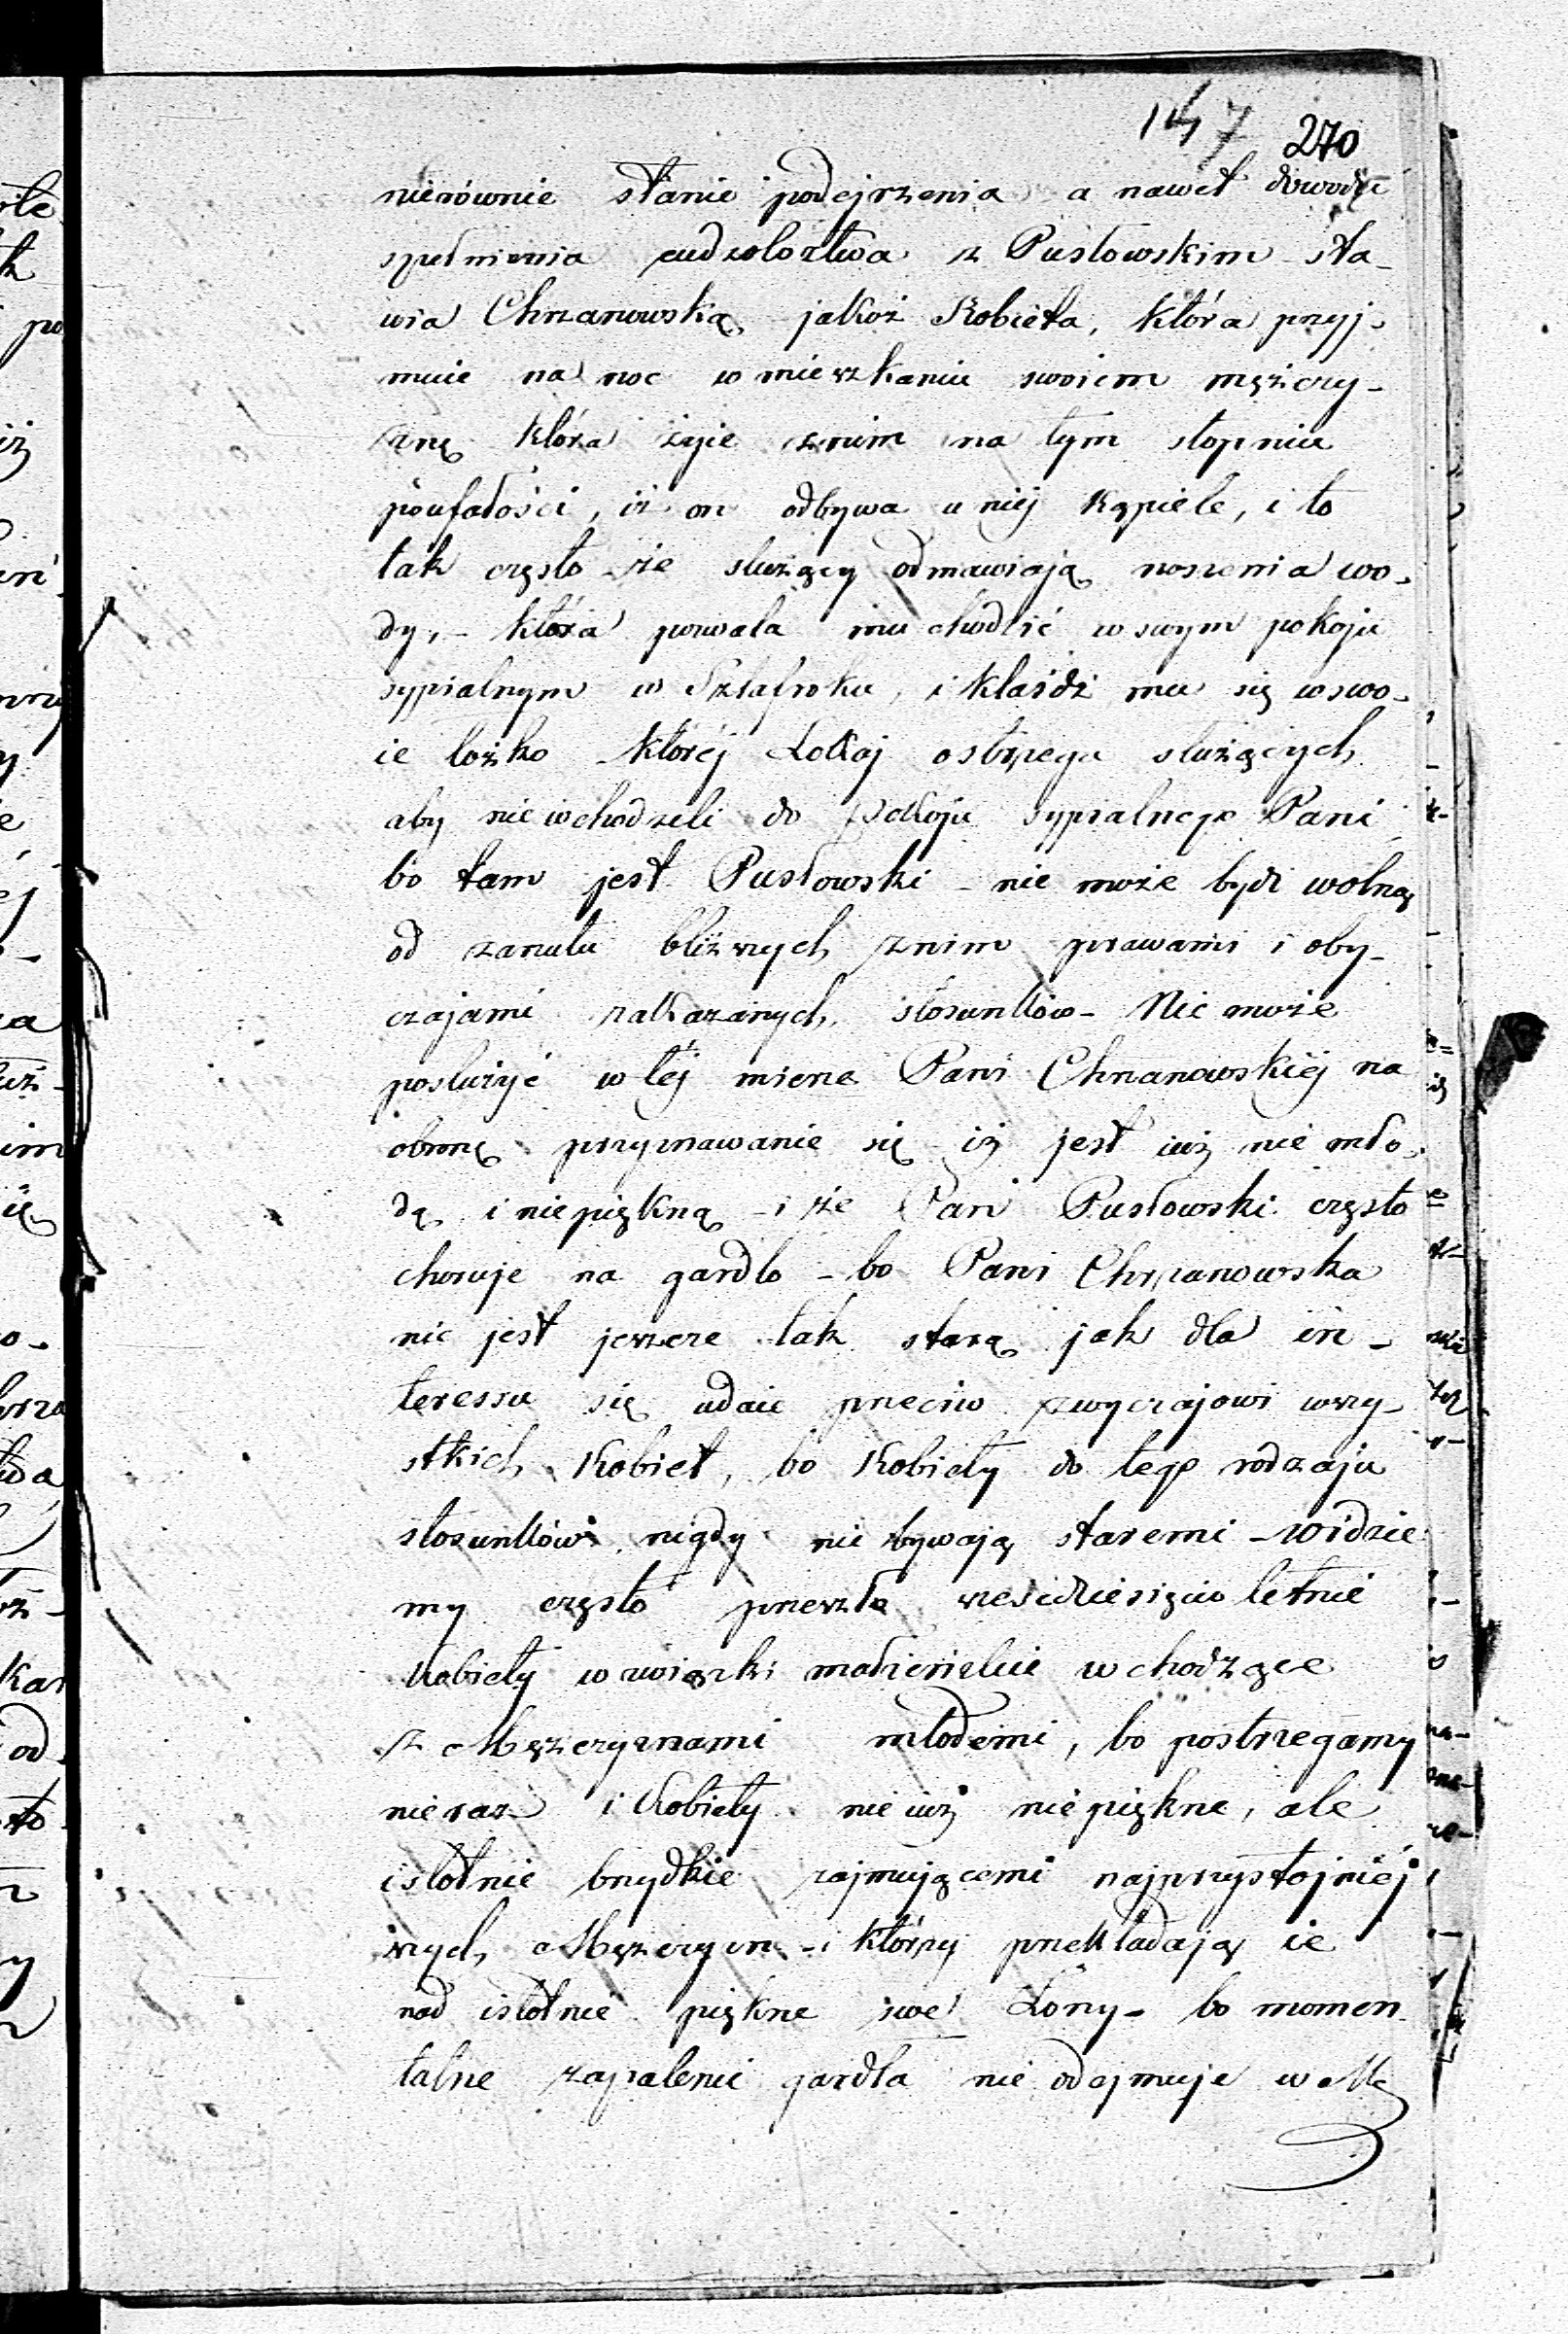 147 270
nierównie stanie podejrzenia a nawet dowodu
spełnienia cudzołoztwa z Pusłowskim sta-
wia Chrzanowską, jakoż Kobieta, która przyj-
muie na noc w mieszkaniu swoiem mężczy-
znę która żyie znim na tym stopniu
poufałości, iż on odbywa u niej kąpiele, i to
tak często że służący odmawiają noszenia wo-
dy, - która pozwala mu chodzić w swym pokoju
sypialnym w Szlafroku, i kłaśdź mu się w swo-
ie łożko - któréj Lokaj ostrzega służących
aby nie wchodzili do pokoju sypialnego Pani
bo tam jest Pusłowski - nie może bydź wolną
od zarzutu bliższych znim prawami i oby-
czajami zakazanych stosunków - Nie może
posłużyć w téj mierze Pani Chrzanowskiéj na
obronę przyznawanie się iż jest iuż nie mło-
dą i niepiękną - i że Pan Pusłowski często
choruje na gardło - bo Pani Chrzanowska
nie jest jeszcze tak starą jak dla in-
teressu się udaie przeciw zwyczajowi wszy-
stkich Kobiet, bo Kobiety do tego rodzaju
stosunków nigdy nie bywają staremi - widzie
my często przeszło sześcdziesięcio letnie
Kobiety w związki małżeńskie wchodzące
z Mężczyznami młodemi, bo postrzegamy
nieraz i Kobiety nie iuż niepiękne, ale
istotnie brzydkie zajmuiącemi najprzystojniéj
szych Mężczyzn - i którzy przekładają ie
nad istotnie piękne swe Żony - bo momen
talne zapalenie gardła nie odejmuje w Mę